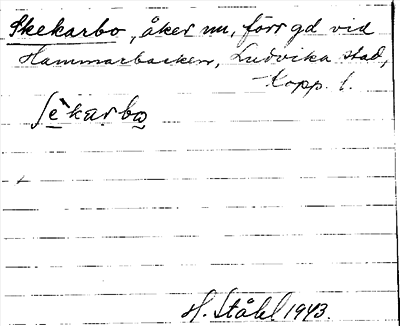 Skekarbo, åker nu, förr gd vid
Hammarbacken, Ludvika stad,
Kopp. l.
ʃèkarbo
H. Ståhl 1943.